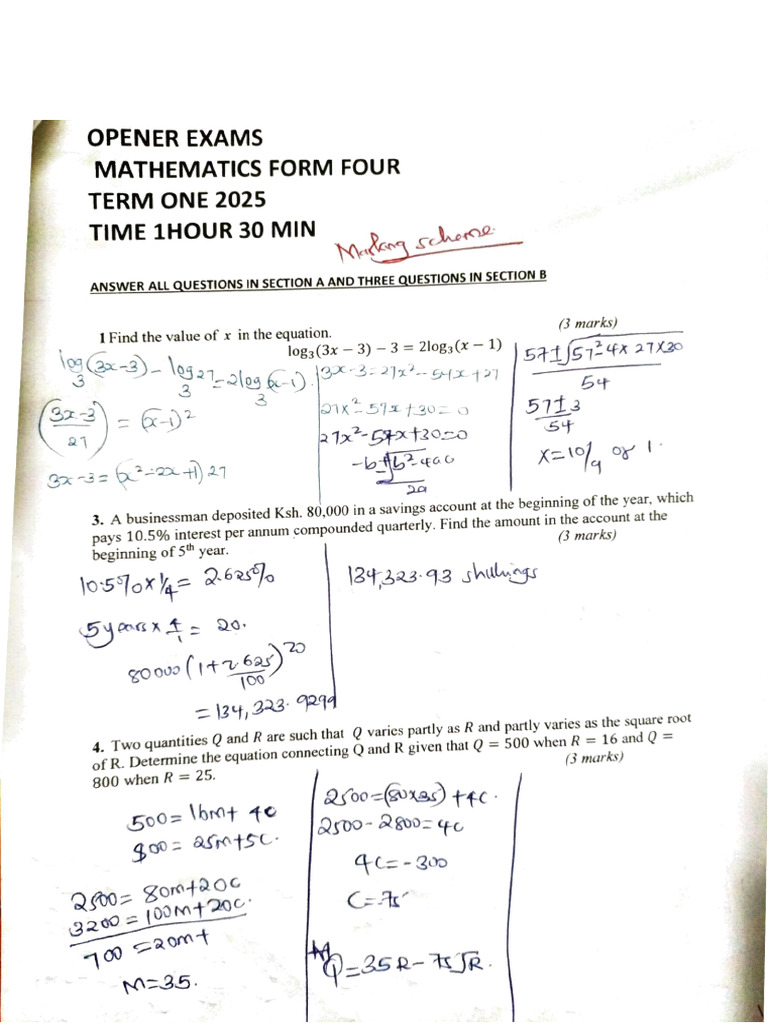 OPENER EXAMS
MATHEMATICS FORM FOUR
TERM ONE 2025
TIME 1HOUR 30 MIN
Marking scheme
ANSWER ALL QUESTIONS IN SECTION A AND THREE QUESTIONS IN SECTION B
1 Find the value of x in the equation. (3 marks)
log₃(3x − 3) − 3 = 2log₃(x − 1)
log₃(3x-3) - log₃27 = 2log₃(x-1).
(3x-3/27) = (x-1)²
3x-3 = (x²-2x+1)27
3x-3=27x²-54x+27
27x²-57x+30=0
27x²-57x+30=0
-b±√b²-4ac
2a
57±√57²-4x27x30
54
57±3
54
x=10/9 or 1.
3. A businessman deposited Ksh. 80,000 in a savings account at the beginning of the year, which
pays 10.5% interest per annum compounded quarterly. Find the amount in the account at the
beginning of 5th year. (3 marks)
10.5% x 1/4 = 2.625%
5 years x 4/1 = 20.
80000(1+2.625/100)²⁰
=134,323.9299
134,323.93 shillings
4. Two quantities Q and R are such that Q varies partly as R and partly varies as the square root
of R. Determine the equation connecting Q and R given that Q = 500 when R = 16 and Q =
800 when R = 25. (3 marks)
500=16m+ 4c
800= 25m+5c.
2500= 80m+20c
3200=100m+20c.
700=20m+
m=35.
2500=(80x35)+4c.
2500-2800=4c
4c=-300
c=-75
Q=35R-75√R.